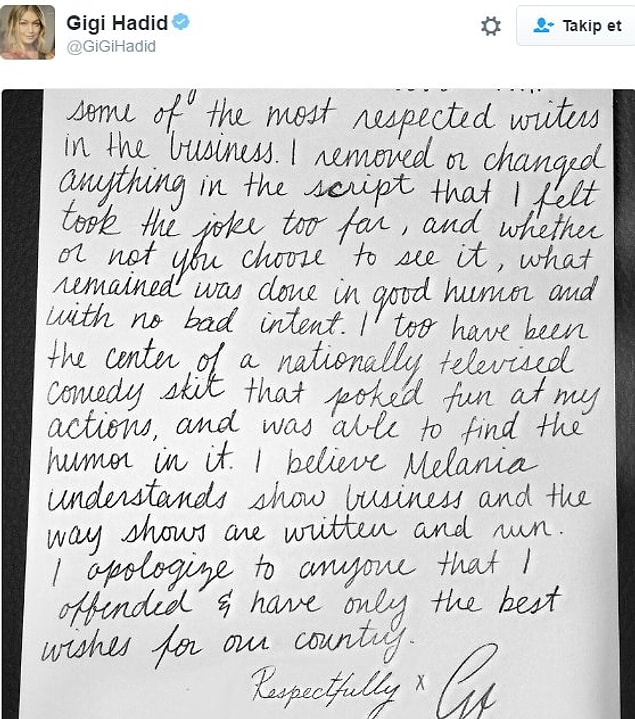 Gigi Hadid
@GiGiHadid
Takip et
some of the most respected writers
in the business. I removed or changed
anything in the script that I felt
took the joke too far, and whether
or not you choose to see it, what
remained was done in good humor and
with no bad intent. I too have been
the center of a nationally televised
comedy skit that poked fun at my
actions, and was able to find the
humor in it. I believe Melania
understands show business and the
way shows are written and run.
I apologize to anyone that I
offended & have only the best
wishes for our country.
Respectfully x